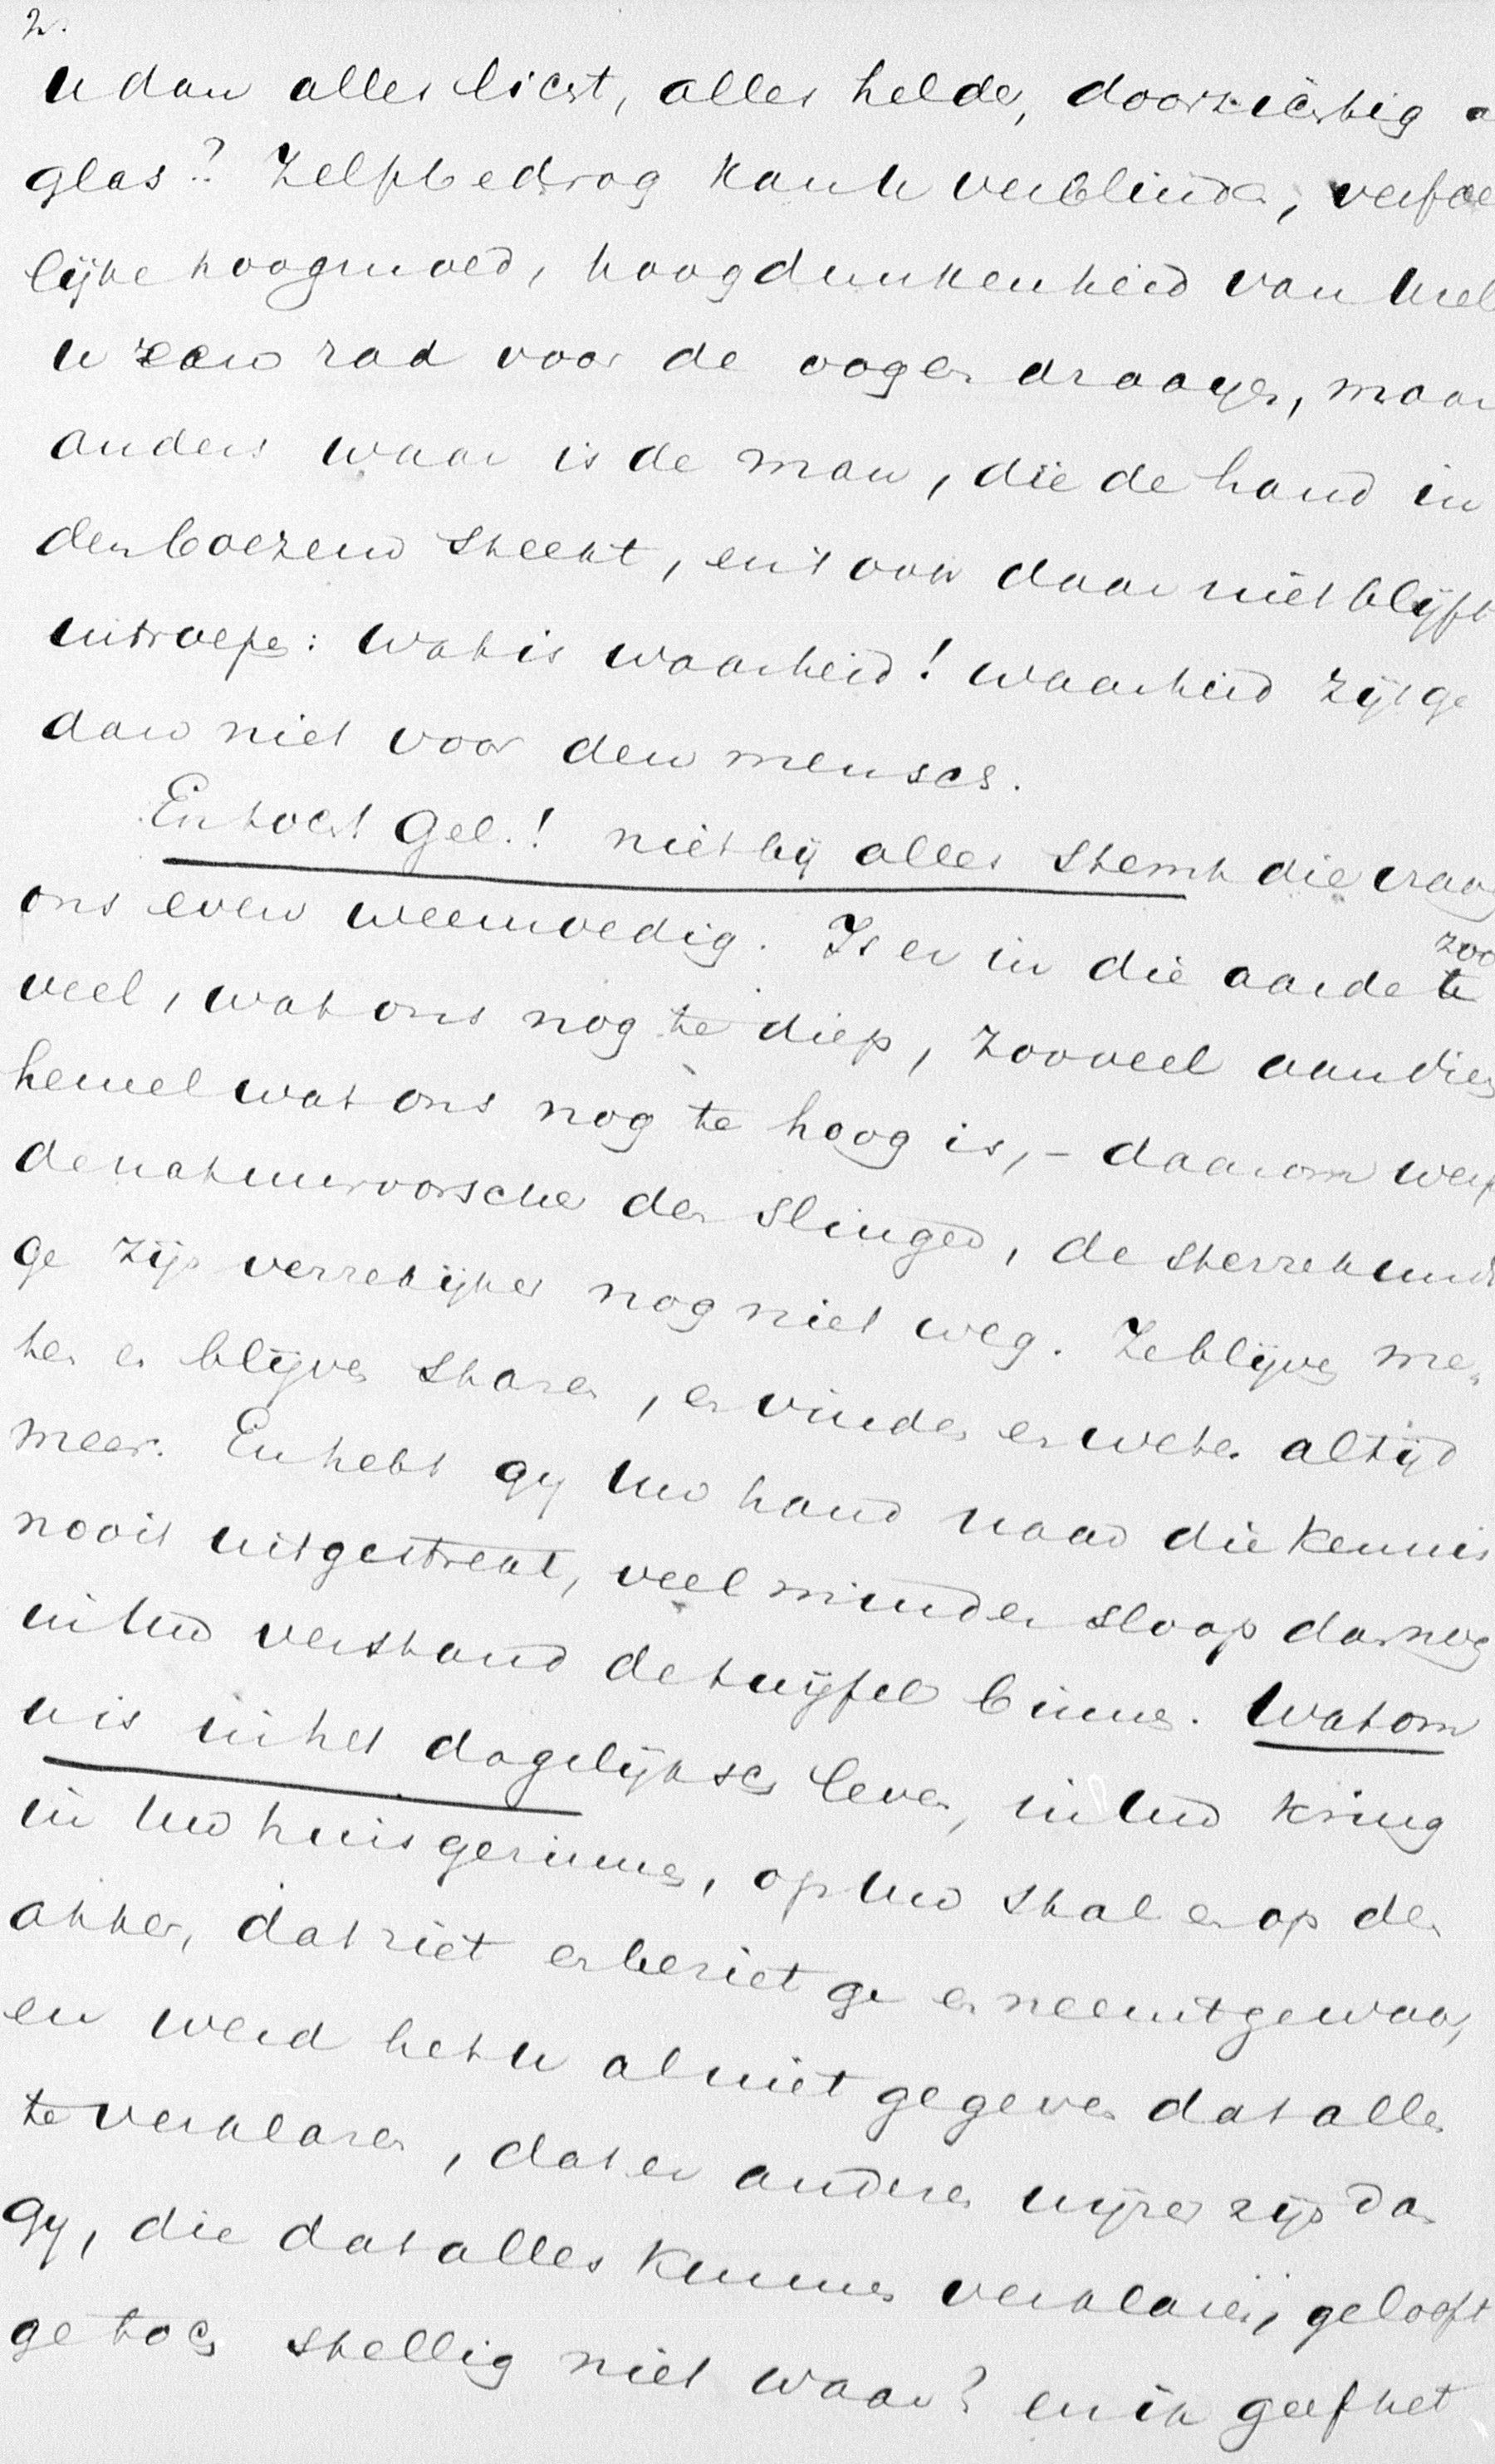 2.
U dan alles licht, alles helder, doorzichtig a
glas? Zelfbedrog kan U verblinden, verfoei
lijke hoogmoed, hoogdunkenheid van Uzel
U een rad voor de oogen draayen, maar
anders waar is de man, die de hand in
den boezem steekt, en 't ook daar niet blijft
uitroepen: wat is waarheid! waarheid zijt ge
dan niet voor den mensch.
En toch Gel.! niet bij alles stemt die vraag
ons even weemoedig. Is er in die aarde te zoo
veel, wat ons nog te diep, zooveel aan dien
hemel wat ons nog te hoog is, - daarom werp
de natuurvorscher den slinger, de sterrekundi
ge zijn verrekijker nog niet weg. Ze blijven me
ten en blijven staren, en vinden en weten altijd
meer. En hebt gy Uw hand naar die kennis
nooit uitgestrekt, veel minder sloop dan nog
in Uw verstand de twijfel binnen. Wat om
U is in het dagelijksch leven, in Uw kring
in Uw huisgezinnen, op Uw stal en op den
akker, dat ziet en beziet ge en neemt ge waar,
en werd het U al niet gegeven dat alles
te verklaren, dat er andere wijzen zijn dan
gy, die dat alles kunnen verklaren, gelooft
ge toch stellig niet waar? en ik geef het